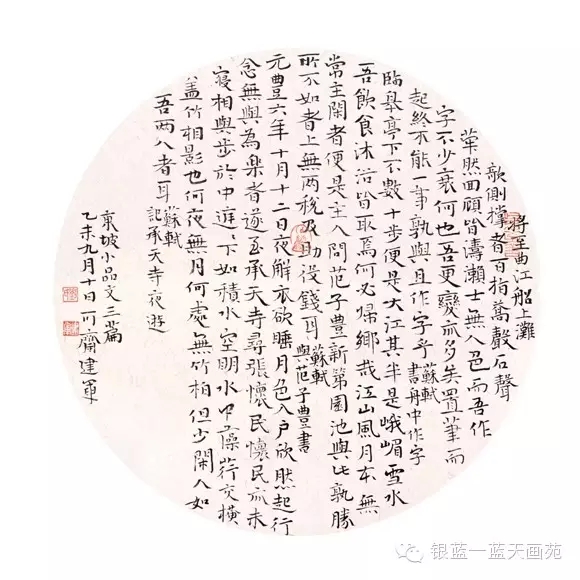 將至曲江船上灘
欹側撐者百指篙聲石聲
犖然四顧皆濤瀨士無人色而吾作
字不少衰何也吾更變亦多矣置筆而
起終不能一事孰與且作字乎
蘇軾
書舟中作字
臨皋亭下不數十步便是大江其半是峨嵋雪水
吾飲食沐浴皆取焉何必歸鄉哉江山風月本無
常主閑者便是主人問范子豊新第園池與此孰勝
所不如者上無兩稅及助役錢耳
蘇軾
與范子豊書
元豊六年十月十二日夜解衣欲睡月色入戶欣然起行
念無與為樂者遂至承天寺尋張懷民懷民亦未
寢相與步於中庭〻下如積水空明水中藻荇交橫
盖竹柏影也何夜無月何處無竹柏但少閑人如
吾兩人者耳
蘇軾
記承天寺夜遊
東坡小品文三篇
乙未九月十日可齋建軍
银蓝一蓝天画苑